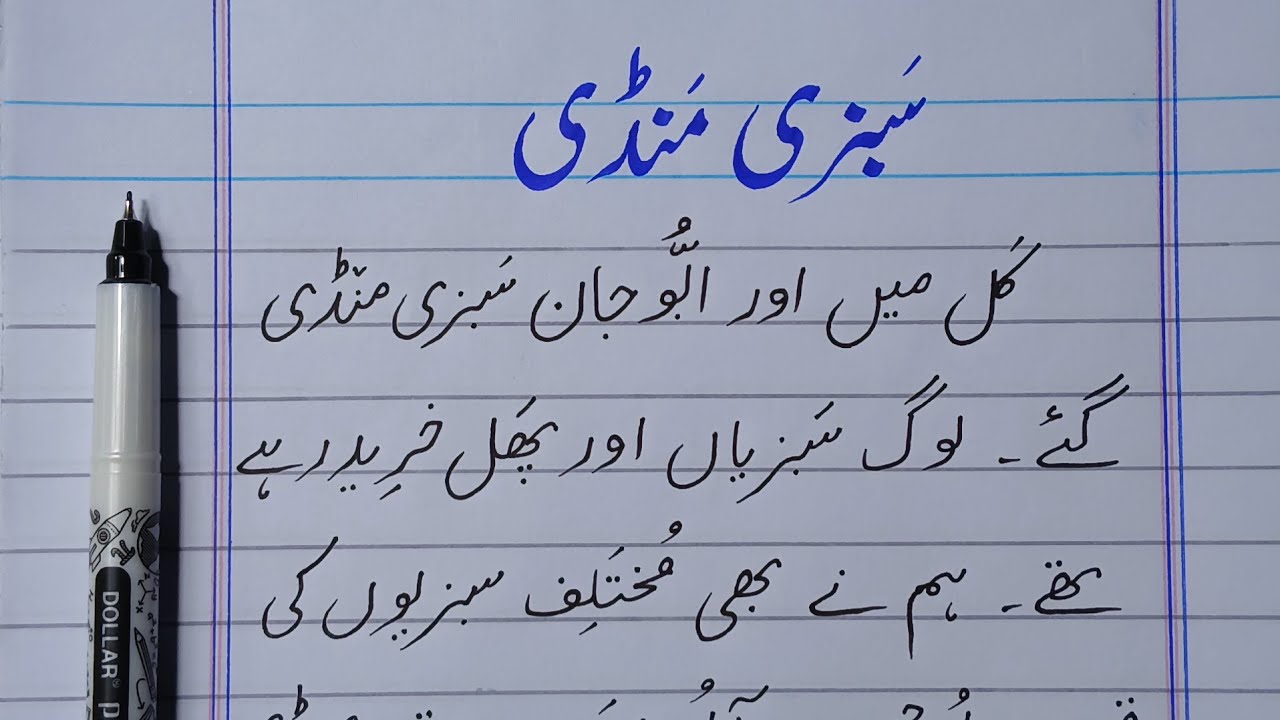 سَبزی مَنڈی
کَل میں اور ابُّو جان سَبزی منڈی
گئے۔ لوگ سَبزیاں اور پھَل خرِید رہے
تھے۔ ہم نے بھی مُختَلِف سبزیوں کی
DOLLAR